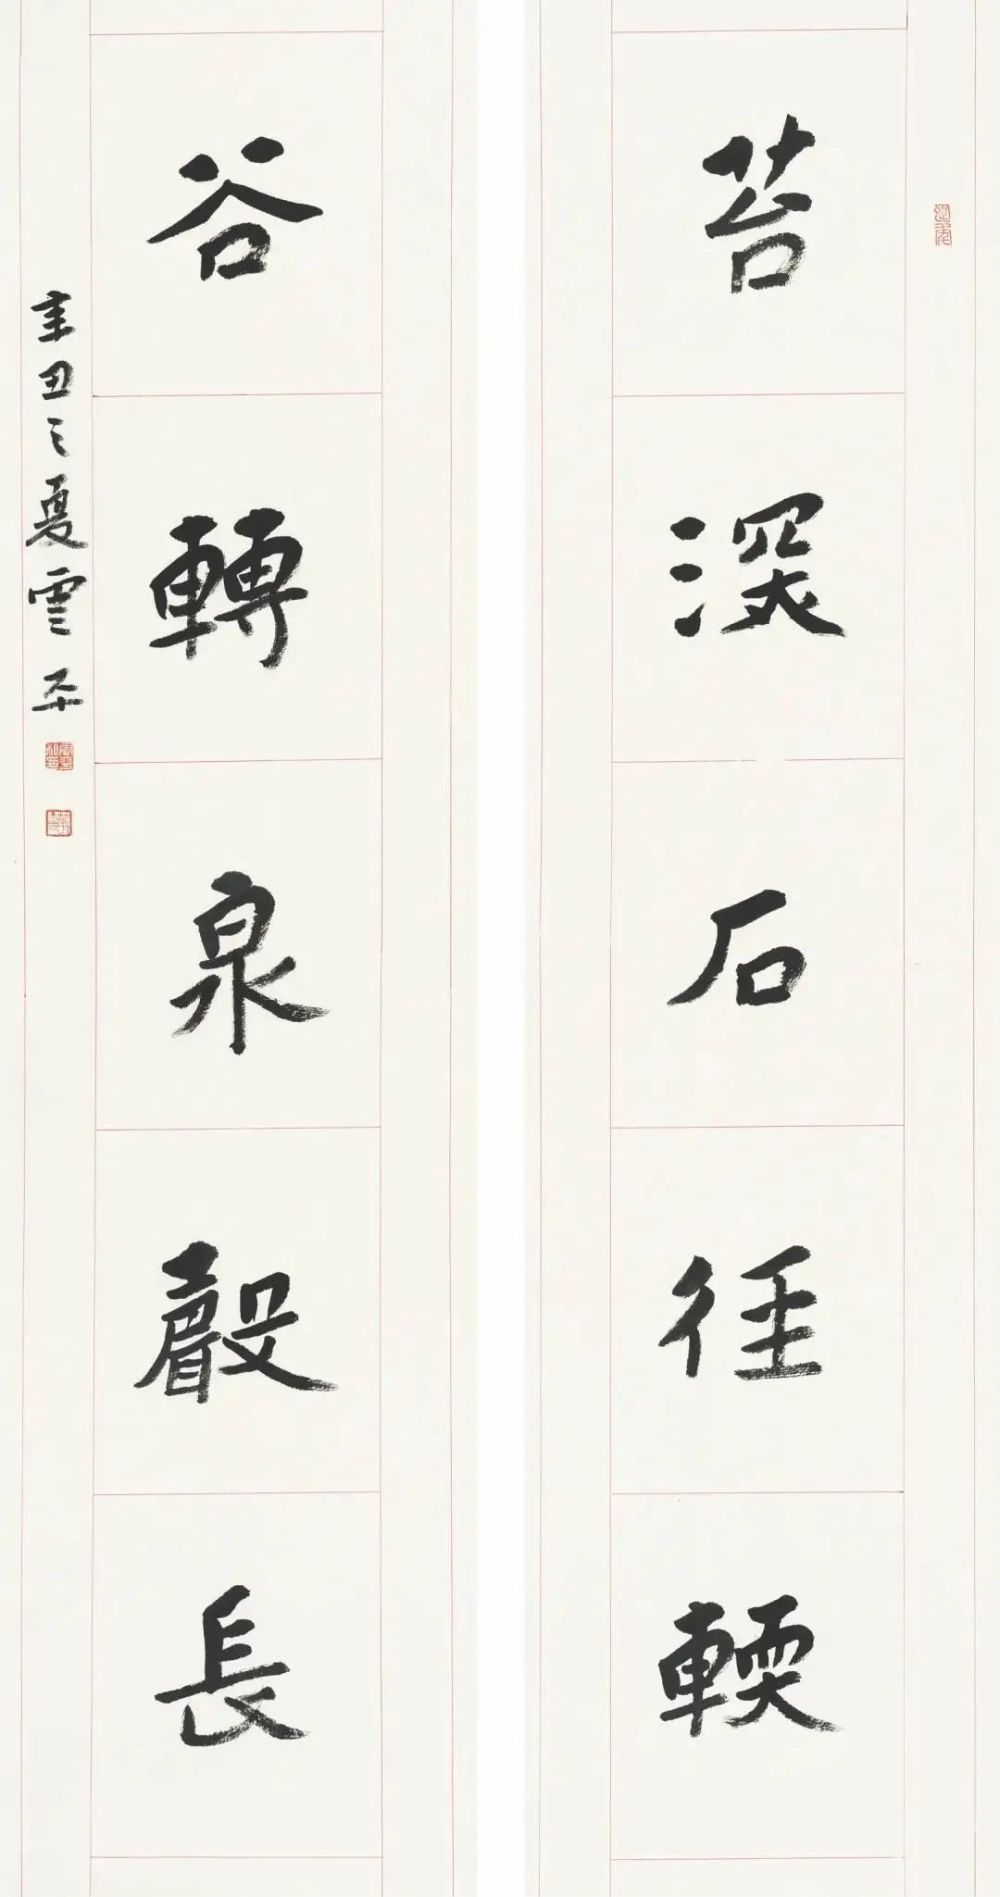 苔深石徑輭
谷轉泉聲長
辛丑之夏雲平